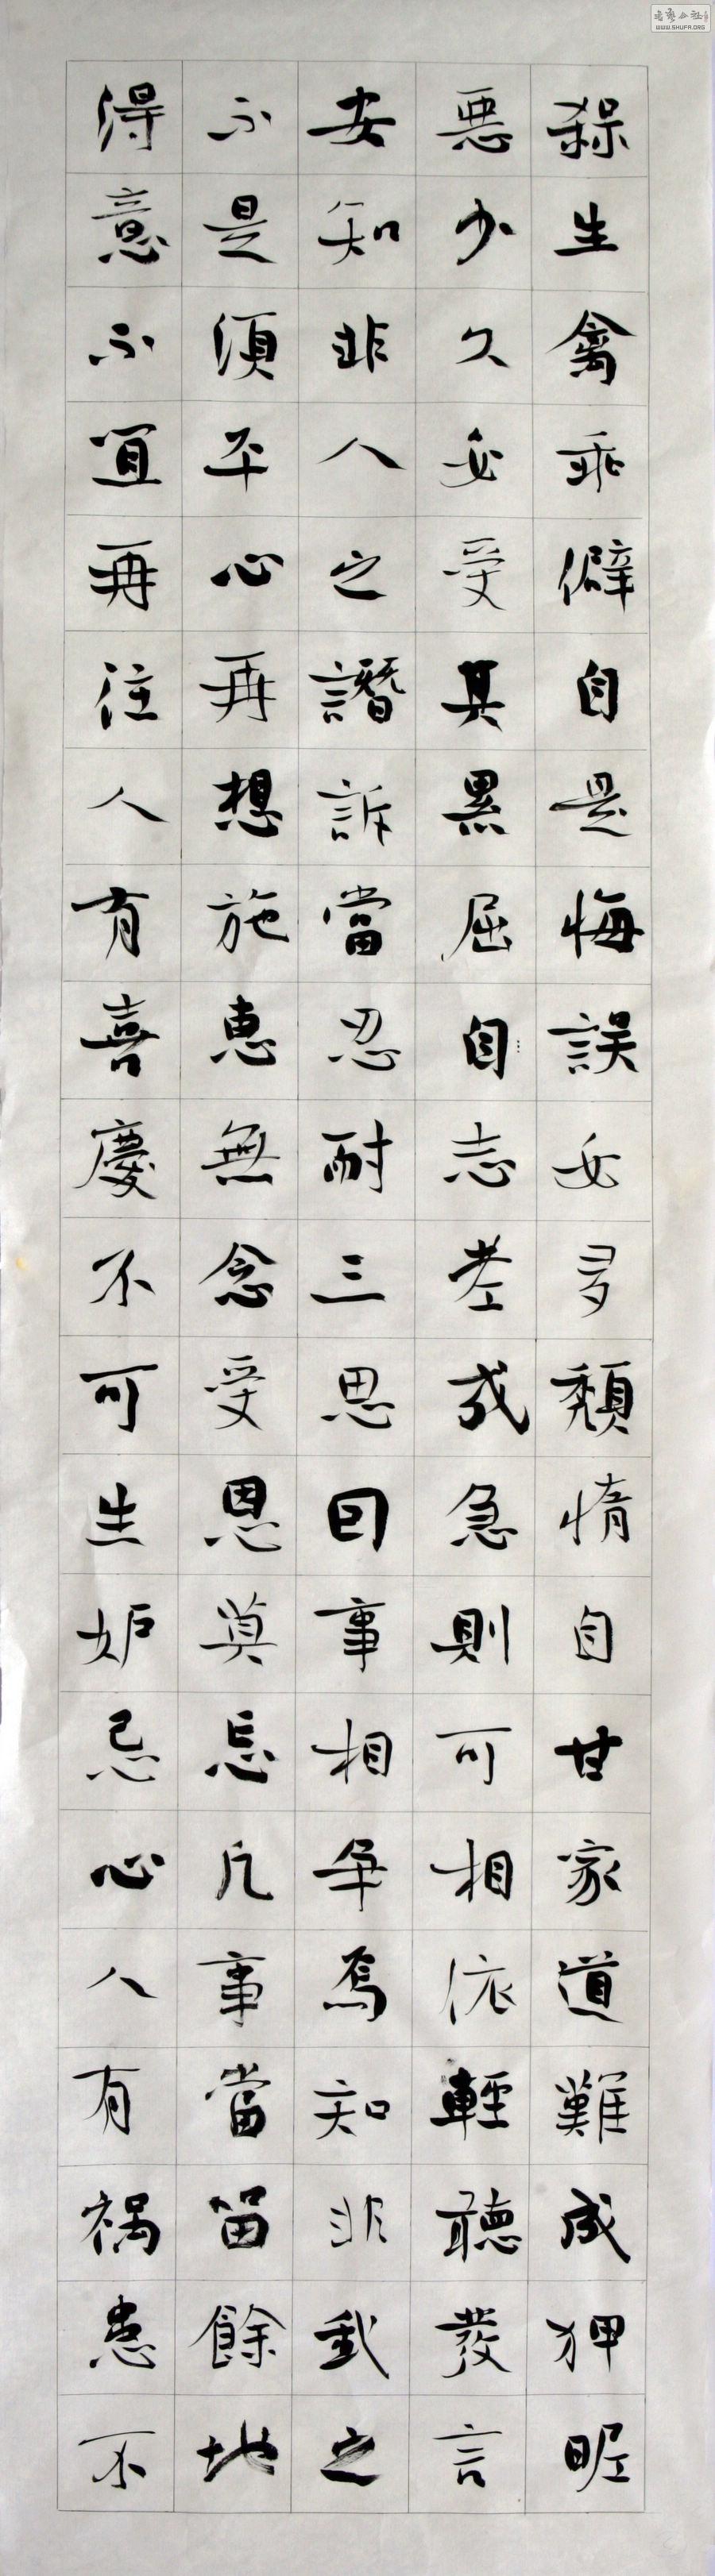 殺生禽乖僻自是悔誤必多頹惰自甘家道難成狎昵
惡少久必受其累屈自志老成急則可相依輕聽發言
安知非人之譖訴當忍耐三思因事相爭焉知非我之
不是須平心再想施惠無念受恩莫忘凡事當留餘地
得意不宜再往人有喜慶不可生妒忌心人有禍患不
WWW.SHUFA.ORG